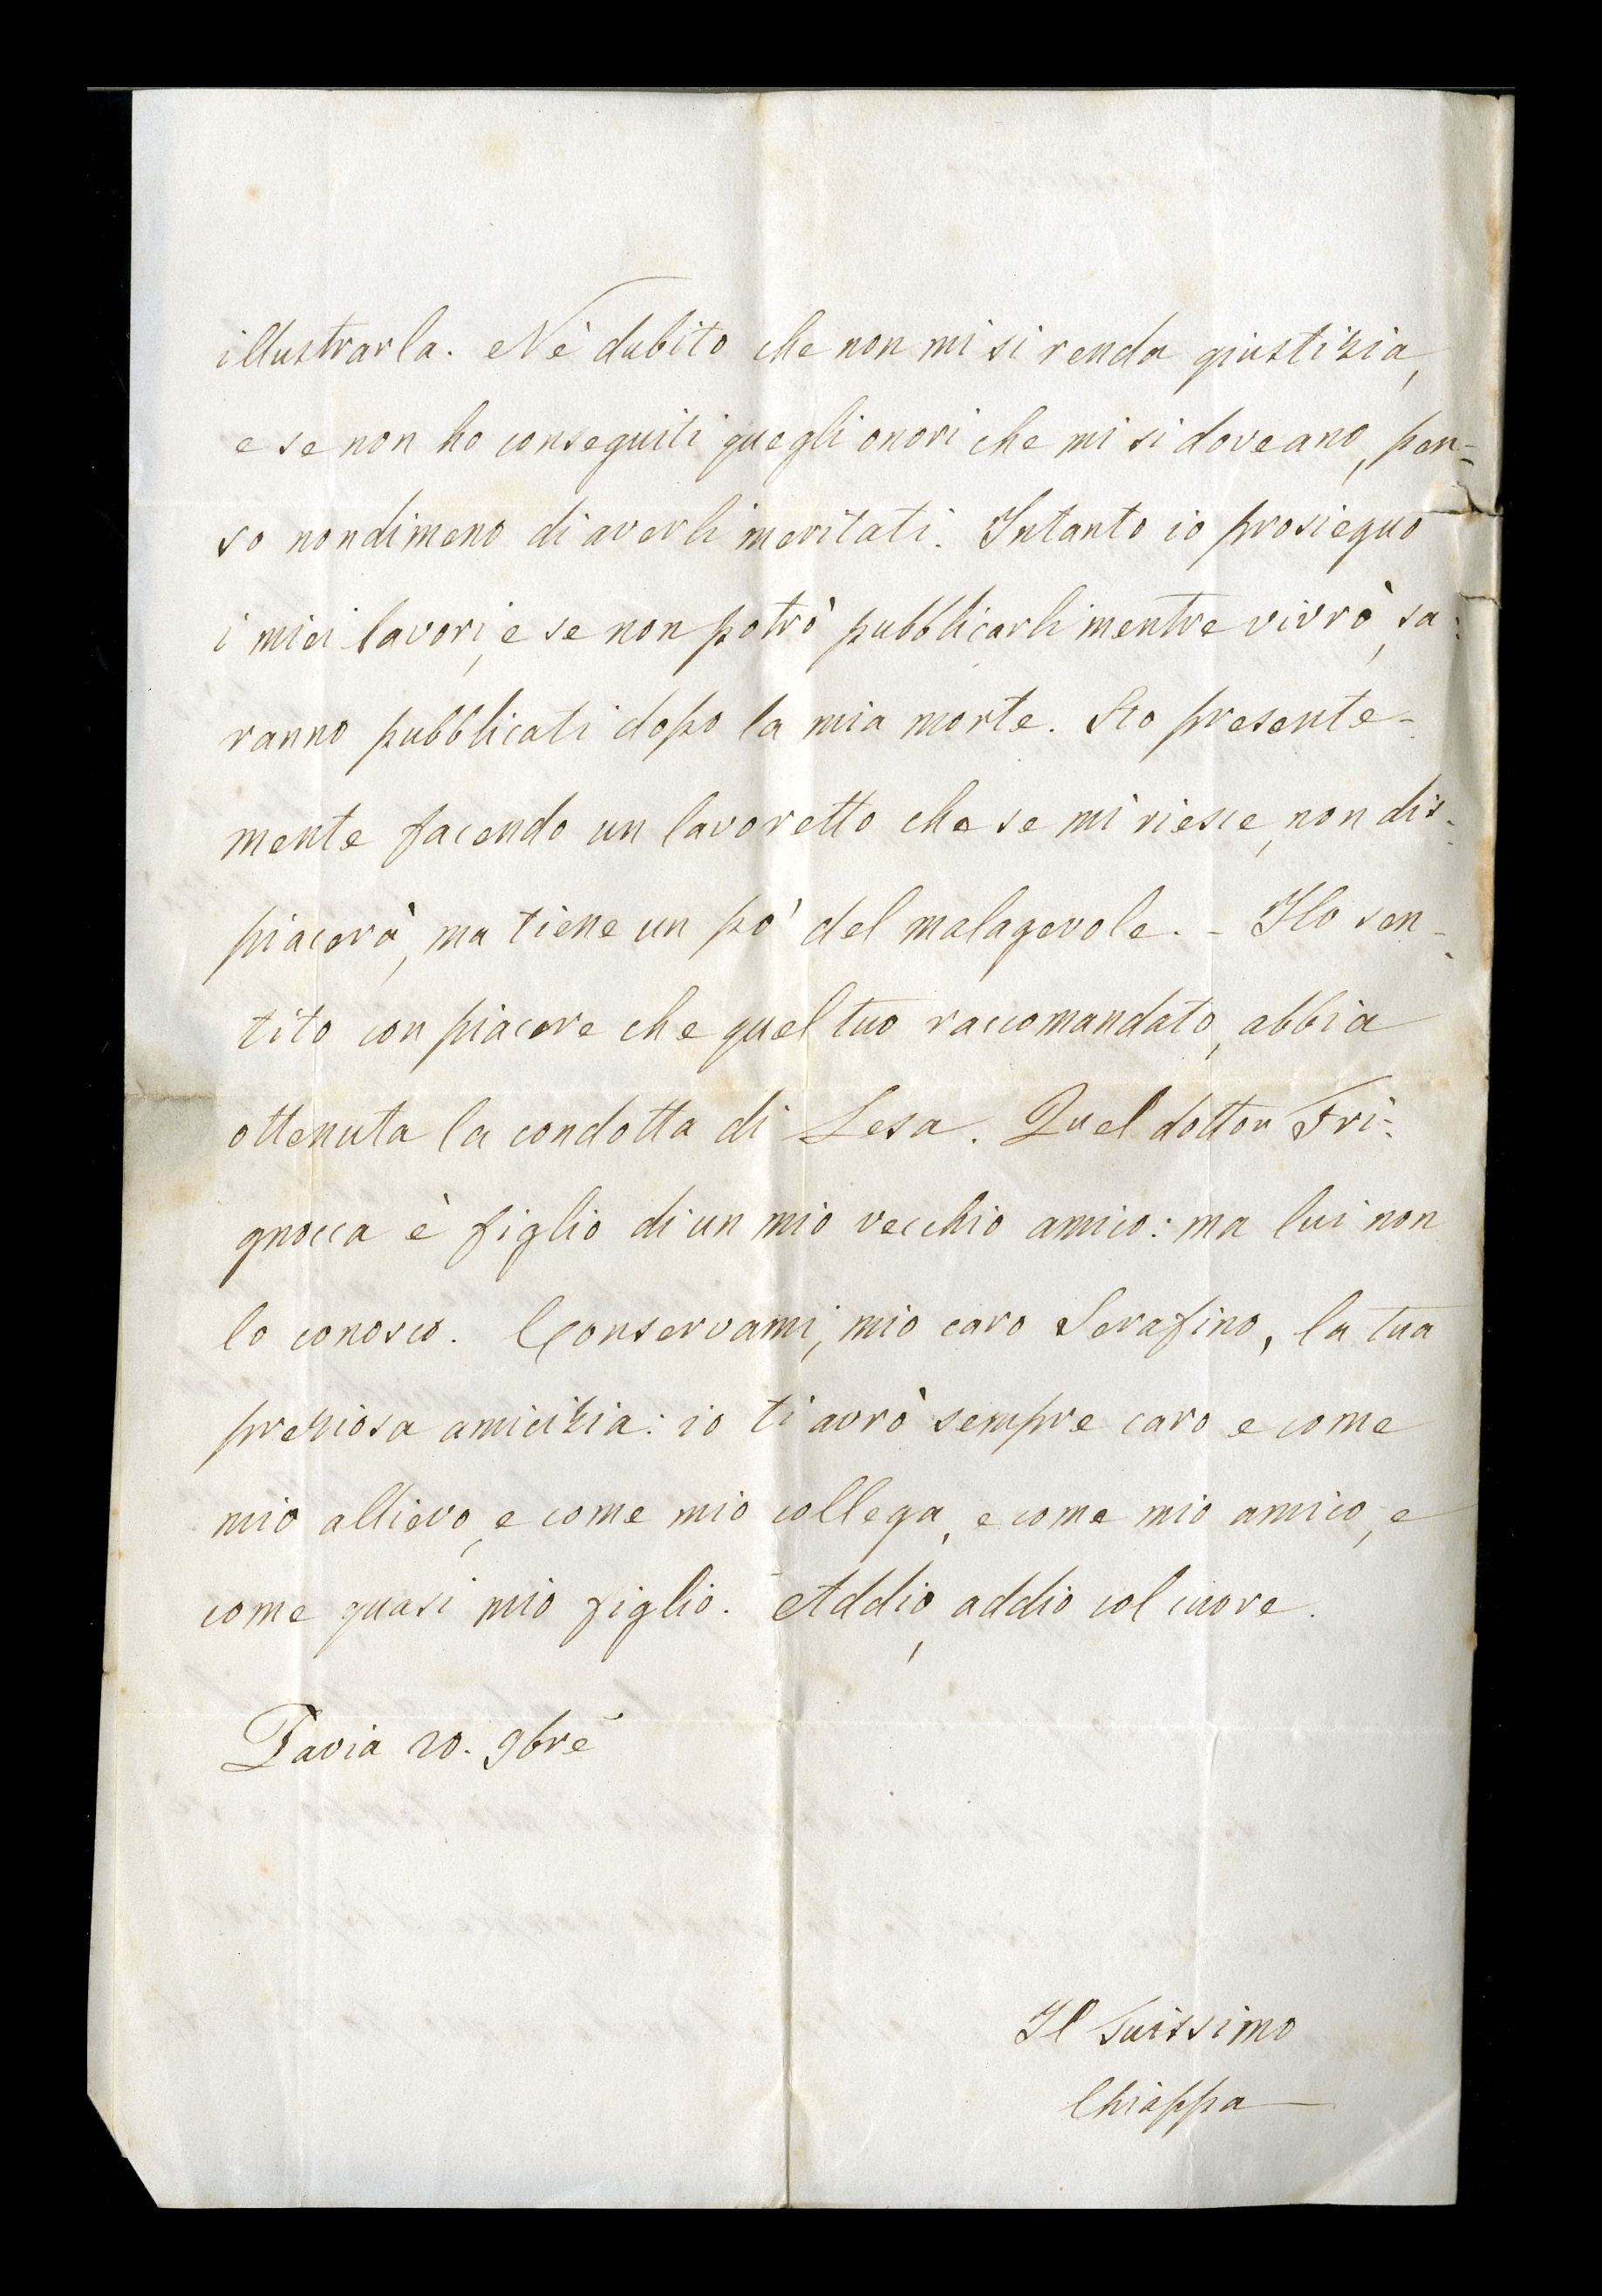 illustrarla. Nè dubito che non mi si renda giustizia,
e se non ho conseguiti quegli onori che mi si doveano, pen=
so nondimeno di averli meritati. Intanto io prosieguo
i miei lavori, e se non potrò pubblicarli mentre vivrò, sa=
ranno pubblicati dopo la mia morte. Sto presente=
mente facendo un lavoretto che se mi riesce, non dis=
piacerà, ma tiene un pò del malagevole. - Ho sen=
tito con piacere che quel tuo raccomandato, abbia
ottenuta la condotta di Lesa. Quel dottor Fri=
gnocca è figlio di un mio vecchio amico: ma lui non
lo conosco. Conservami, mio caro Serafino, la tua
preziosa amicizia: io ti avrò sempre caro e come
mio allievo, e come mio collega, e come mio amico, e
come quasi mio figlio. Addio, addio col cuore.
Pavia 20. 9bre
Il Tuissimo
Chiappa